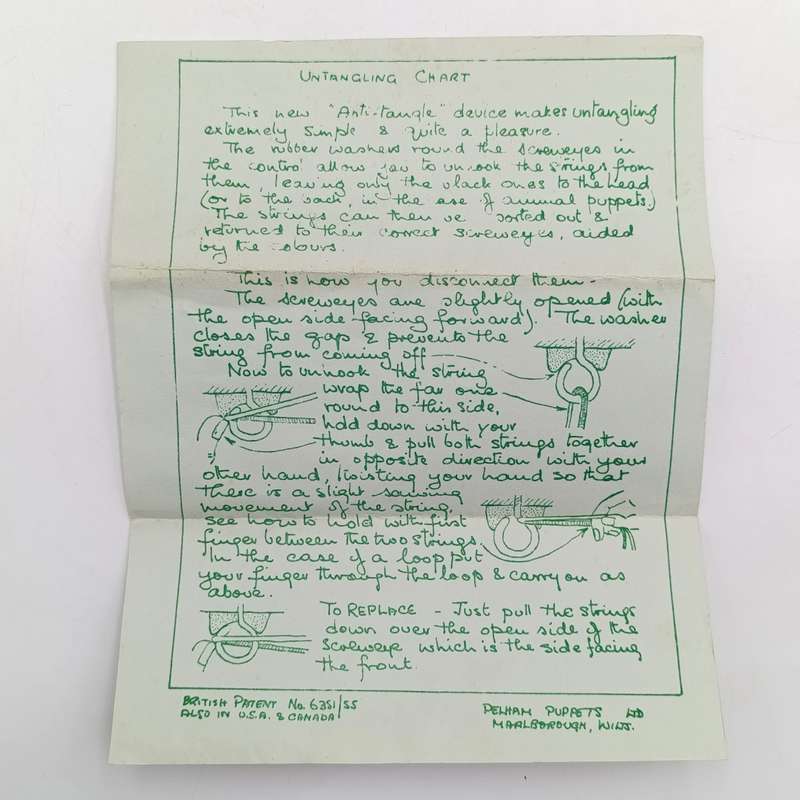 UNTANGLING CHART
This new "Anti-tangle" device makes untangling
extremely simple & quite a pleasure.
The rubber washers round the screweyes in
the control allow you to unhook the strings from
them, leaving only the black ones to the head
(or to the back, in the case of animal puppets.)
The strings can then be sorted out &
returned to their correct screweyes, aided
by the colours.
This is how you disconnect them-
The screweyes are slightly opened (with
the open side facing forward). The washer
closes the gap & prevents the
string from coming off
Now to unhook the string
wrap the far one
round to this side,
hold down with your
thumb & pull both strings together
in opposite direction with your
other hand, twisting your hand so that
there is a slight sawing
movement of the string.
See how to hold with first
finger between the two strings.
In the case of a loop put
your finger through the loop & carry on as
above.
TO REPLACE - Just pull the strings
down over the open side of the
screweye which is the side facing
the front.
BRITISH PATENT No. 6351/55
ALSO IN U.S.A. & CANADA
PELHAM PUPPETS LTD
MARLBOROUGH, WILTS.